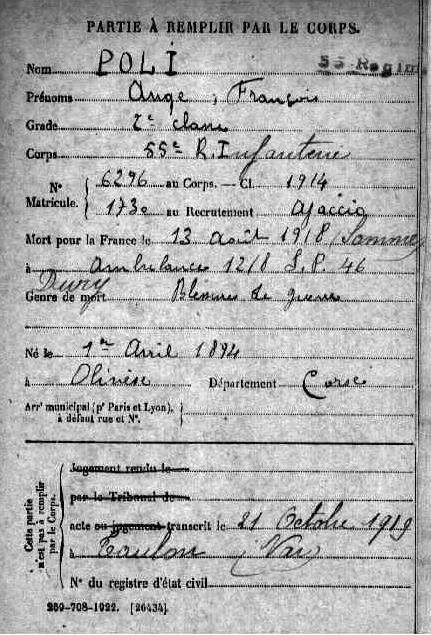 PARTIE À REMPLIR PAR LE CORPS.
55 Regim
Nom POLI
Prénoms Ange, François
Grade 2e classe
Corps 55e R. Infanterie
N° Matricule. 6296 au Corps. — Cl. 1914
1730 au Recrutement Ajaccio
Mort pour la France le 13 Août 1918 (Somme)
à Ambulance 12/8 S.P. 46
Dury
Genre de mort Blessures de guerre
Né le 1er Avril 1894
à Olivèse Département Corse
Arrt municipal (pr Paris et Lyon), à défaut rue et N°.
Cette partie n'est pas à remplir par le Corps.
Jugement rendu le
par le Tribunal de
acte ou jugement transcrit le 21 Octobre 1919
à Toulon (Var)
N° du registre d'état civil
269-708-1922. [26434].